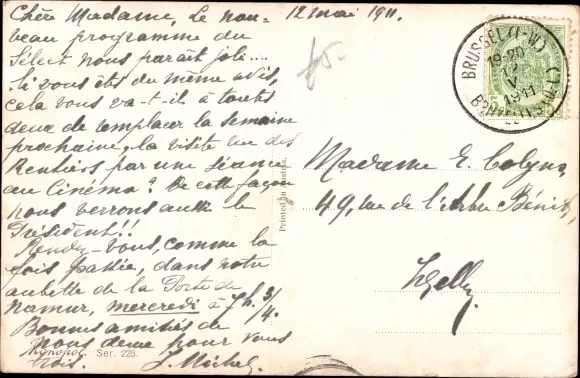 Chère Madame, Le nou-
12 mai 1911.
beau programme du
Sélect nous paraît joli....
Si vous êtes du même avis,
cela vous va-t-il à toutes
deux de remplacer la semaine
prochaine, la visite un des
Rentiers par une séance
au Cinéma? De cette façon
nous verrons aussi le
Président!!
Rendez-vous, comme la
fois passée, dans notre
aubette de la Porte de
Namur, mercredi à 7h. 3/4.
Bonnes amitiés de
nous deux pour vous
trois. J. Michel.
Monopol Ser. 228.
Printed in Austria.
BRUSSEL (1-W.)
19-20
12
V
1911
Madame E. Colyns,
49, rue de l'Arbre Bénit,
Ixelles.